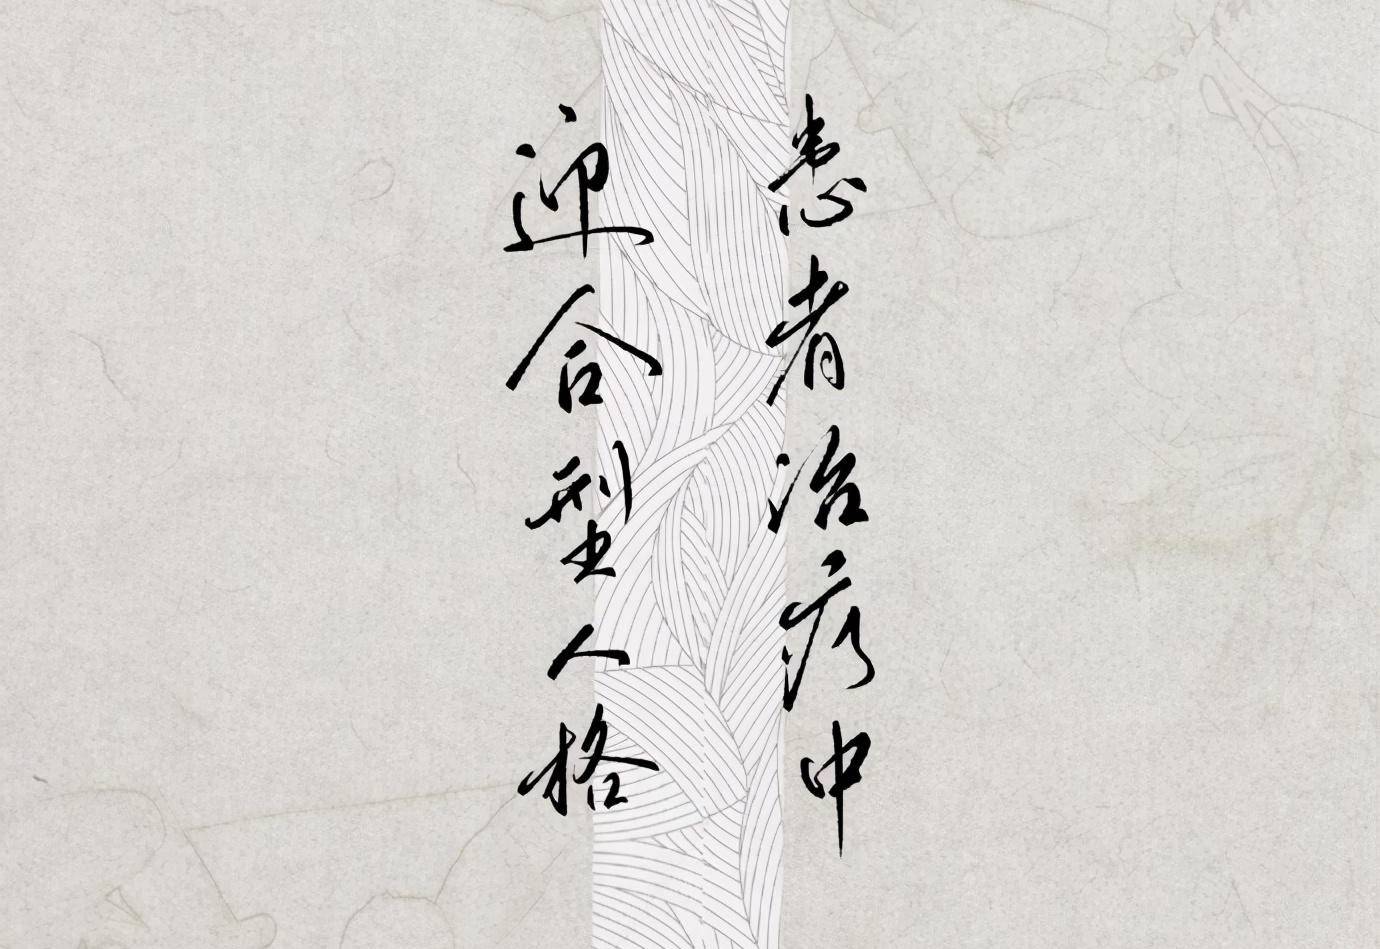 患者治疗中
迎合型人格